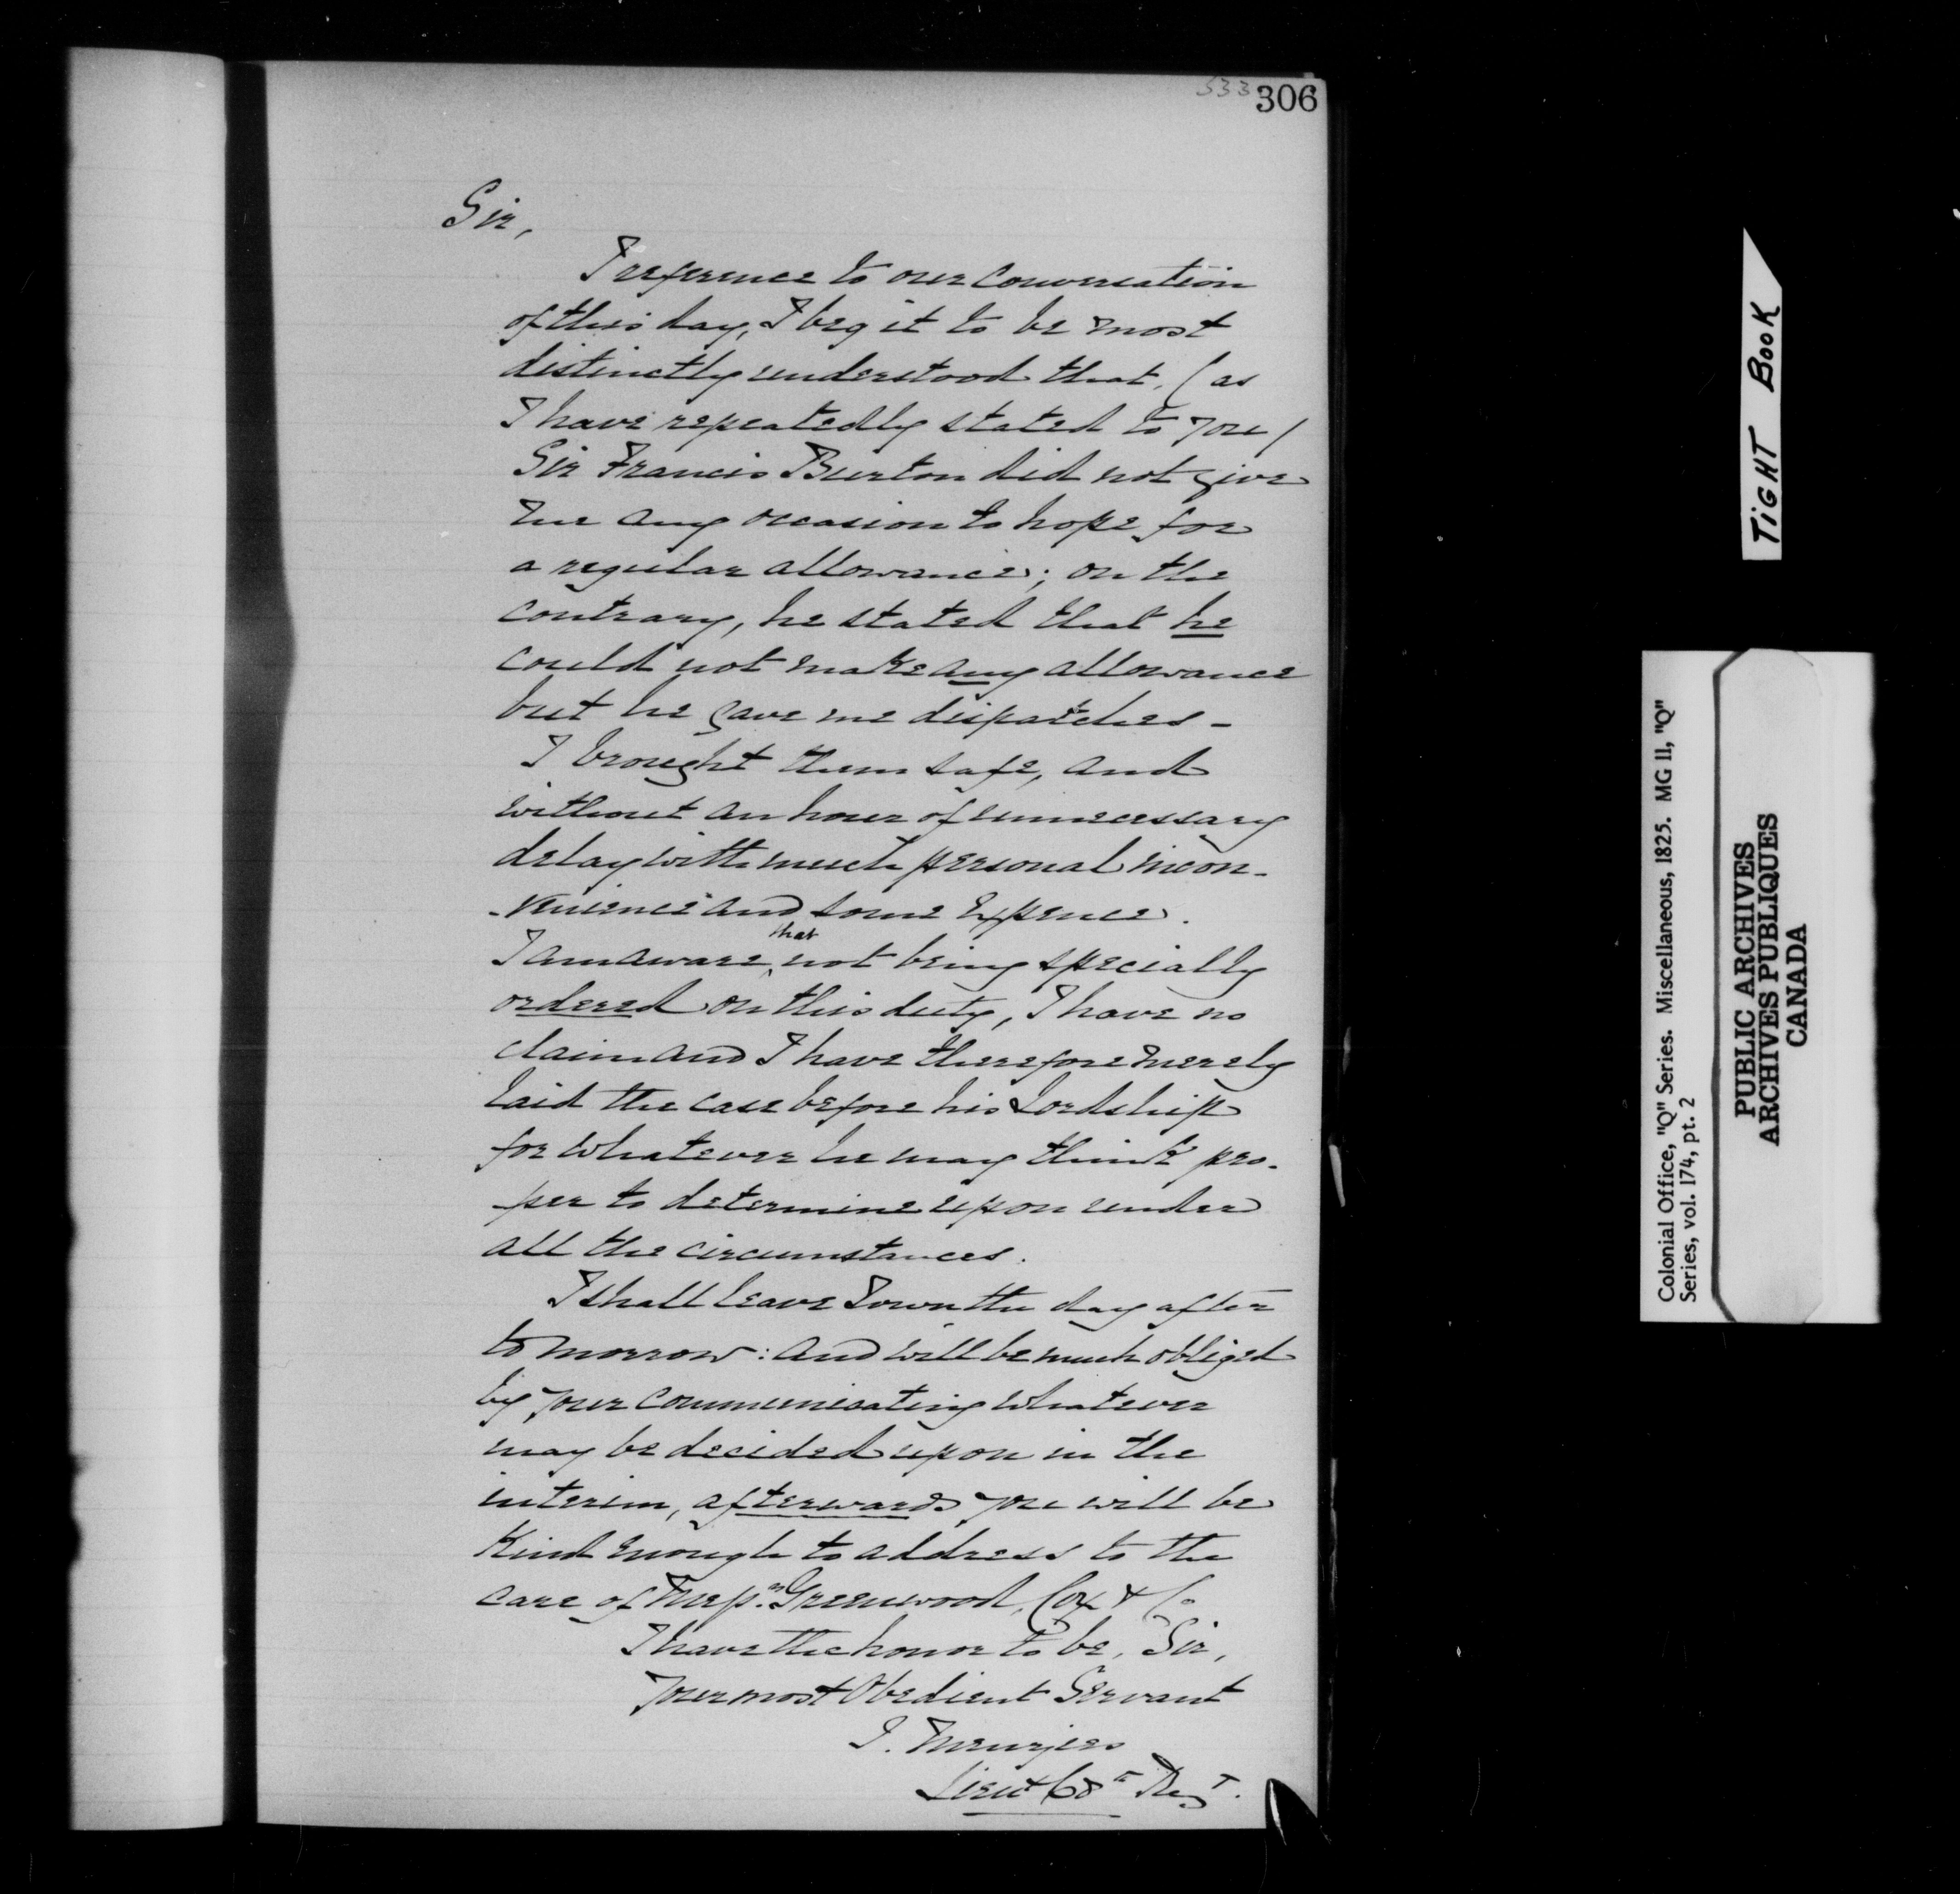 533
306
Sir,
I reference to our conversation
of this day, I beg it to be most
distinctly understood that, (as
I have repeatedly stated to you)
Sir Francis Burton did not give
me any occasion to hope for
a regular allowance; on the
contrary, he stated that he
could not make any allowance
but he gave me dispatches -
I brought them safe, and
without an hour of unnecessary
delay with much personal incon-
-venience and some expence.
I am aware that not being specially
ordered on this duty, I have no
claim and I have therefore merely
laid the case before his Lordship
for whatever he may think pro-
-per to determine upon under
all the circumstances.
I shall leave Town the day after
to morrow: and will be much obliged
by your communicating whatever
may be decided upon in the
interim, afterwards you will be
kind enough to address to the
care of Greenwood, Cox & Co
I have the honor to be, Sir,
Your most Obedient Servant
J. Menzies
Lieut 68th Regt.
TIGHT BOOK
Colonial Office, "Q" Series. Miscellaneous, 1825. MG 11, "Q"
Series, vol. 174, pt. 2
PUBLIC ARCHIVES
ARCHIVES PUBLIQUES
CANADA